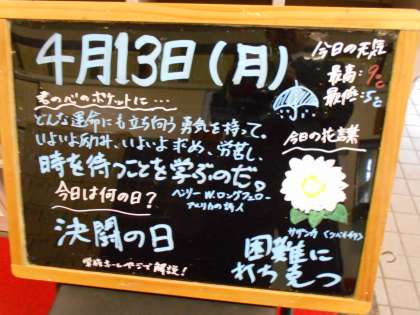 4月13日(月)
今日の天気
最高:9℃
最低:5℃
君の心のポケットに…
どんな運命にも立ち向う勇気を持って、
いよいよ励み、いよいよ求め、労苦し、
時を待つことを学ぶのだ。
ヘンリー W.ロングフェロー
アメリカの詩人
今日は何の日?
決闘の日
今日の花言葉
サザンカ
困難に
打ち克つ